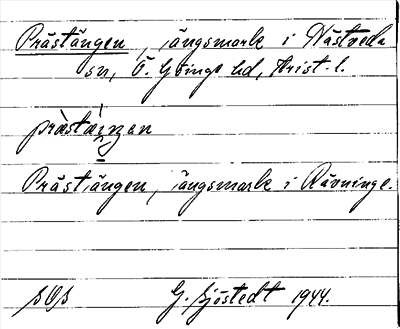 Prästängen, ängsmark i Nästveda
sn, Ö. Göinge hd, Krist. l.
präståŋən
Prästängen, ängsmark i Rävninge.
SOS G. Sjöstedt 1944.